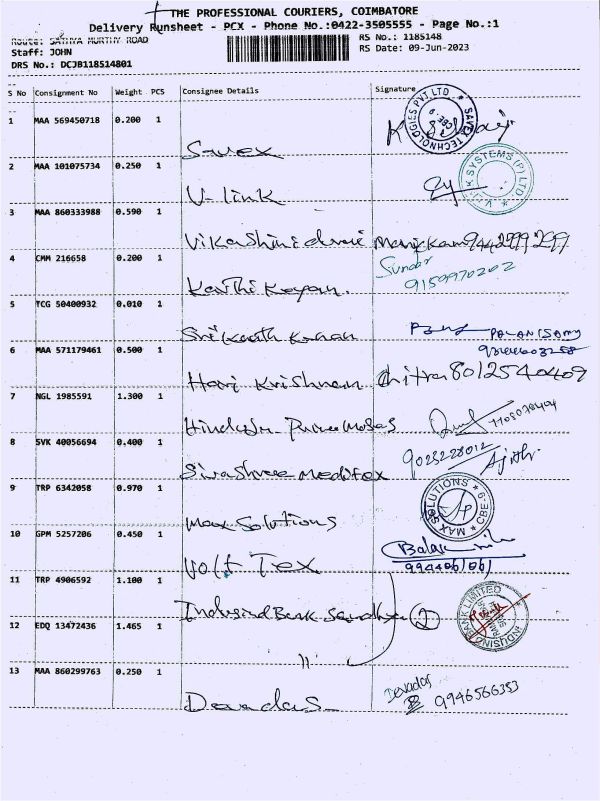 THE PROFESSIONAL COURIERS, COIMBATORE
Delivery Runsheet - PCX - Phone No.:0422-3505555 - Page No.:1
Route: SATHYA MURTHY ROAD
RS No.: 1185148
Staff: JOHN
RS Date: 09-Jun-2023
DRS No.: DCJB118514801
S No Consignment No Weight PCS Consignee Details Signature
1 MAA 569450718 0.200 1
SAVEX TECHNOLOGIES PVT LTD CBE-9
Savex
2 MAA 101075734 0.250 1
SYSTEMS (P) LTD
V-link
3 MAA 860333988 0.590 1
Manikam 9442999299
4 CMM 216658 0.200 1
Sundar
9159970202
Karthi Keyan.
5 TCG 50400932 0.010 1
Srikanth
PALANISAMY
6 MAA 571179461 0.500 1
Hari Krishnan Chitra 8012540409
7 NGL 1985591 1.300 1
8 SVK 40056694 0.400 1
9025228012
Sivashree Meditex
9 TRP 6342058 0.970 1
MAX SOLUTIONS CBE-9
Max Solutions
10 GPM 5257206 0.450 1
Volt Tex
11 TRP 4906592 1.100 1
INDUSIND BANK LIMITED
Indusind Bank Sandhya 2
12 EDQ 13472436 1.465 1
11
13 MAA 860299763 0.250 1
Devadas
9946566353
Devadas